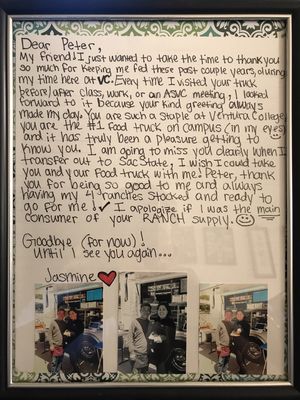 Dear Peter,
My friend! I just wanted to take the time to thank you
so much for keeping me fed these past couple years, during
my time here at VC. Every time I visited your truck
before/after class, work, or an ASVC meeting, I looked
forward to it because your kind greeting always
made my day. You are such a staple at Ventura College
you are the #1 food truck on campus (in my eyes)
and it has truly been a pleasure getting to
know you. I am going to miss you dearly when I
transfer out to Sac State, I wish I could take
you and your food truck with me! Peter, thank
you for being so good to me and always
having my 4 ranches stocked and ready to
go for me! I apologize if I was the main
consumer of your RANCH supply.
Goodbye (for now)!
Until I see you again...
Jasmine